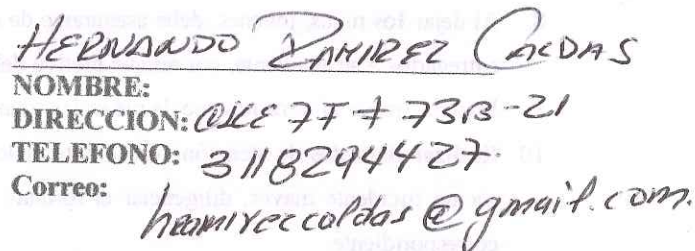 HERNANDO RAMIREZ CALDAS
NOMBRE:
DIRECCION: CLLE 7F # 73B-21
TELEFONO: 3118294427.
Correo: hramirezcaldas@gmail.com.